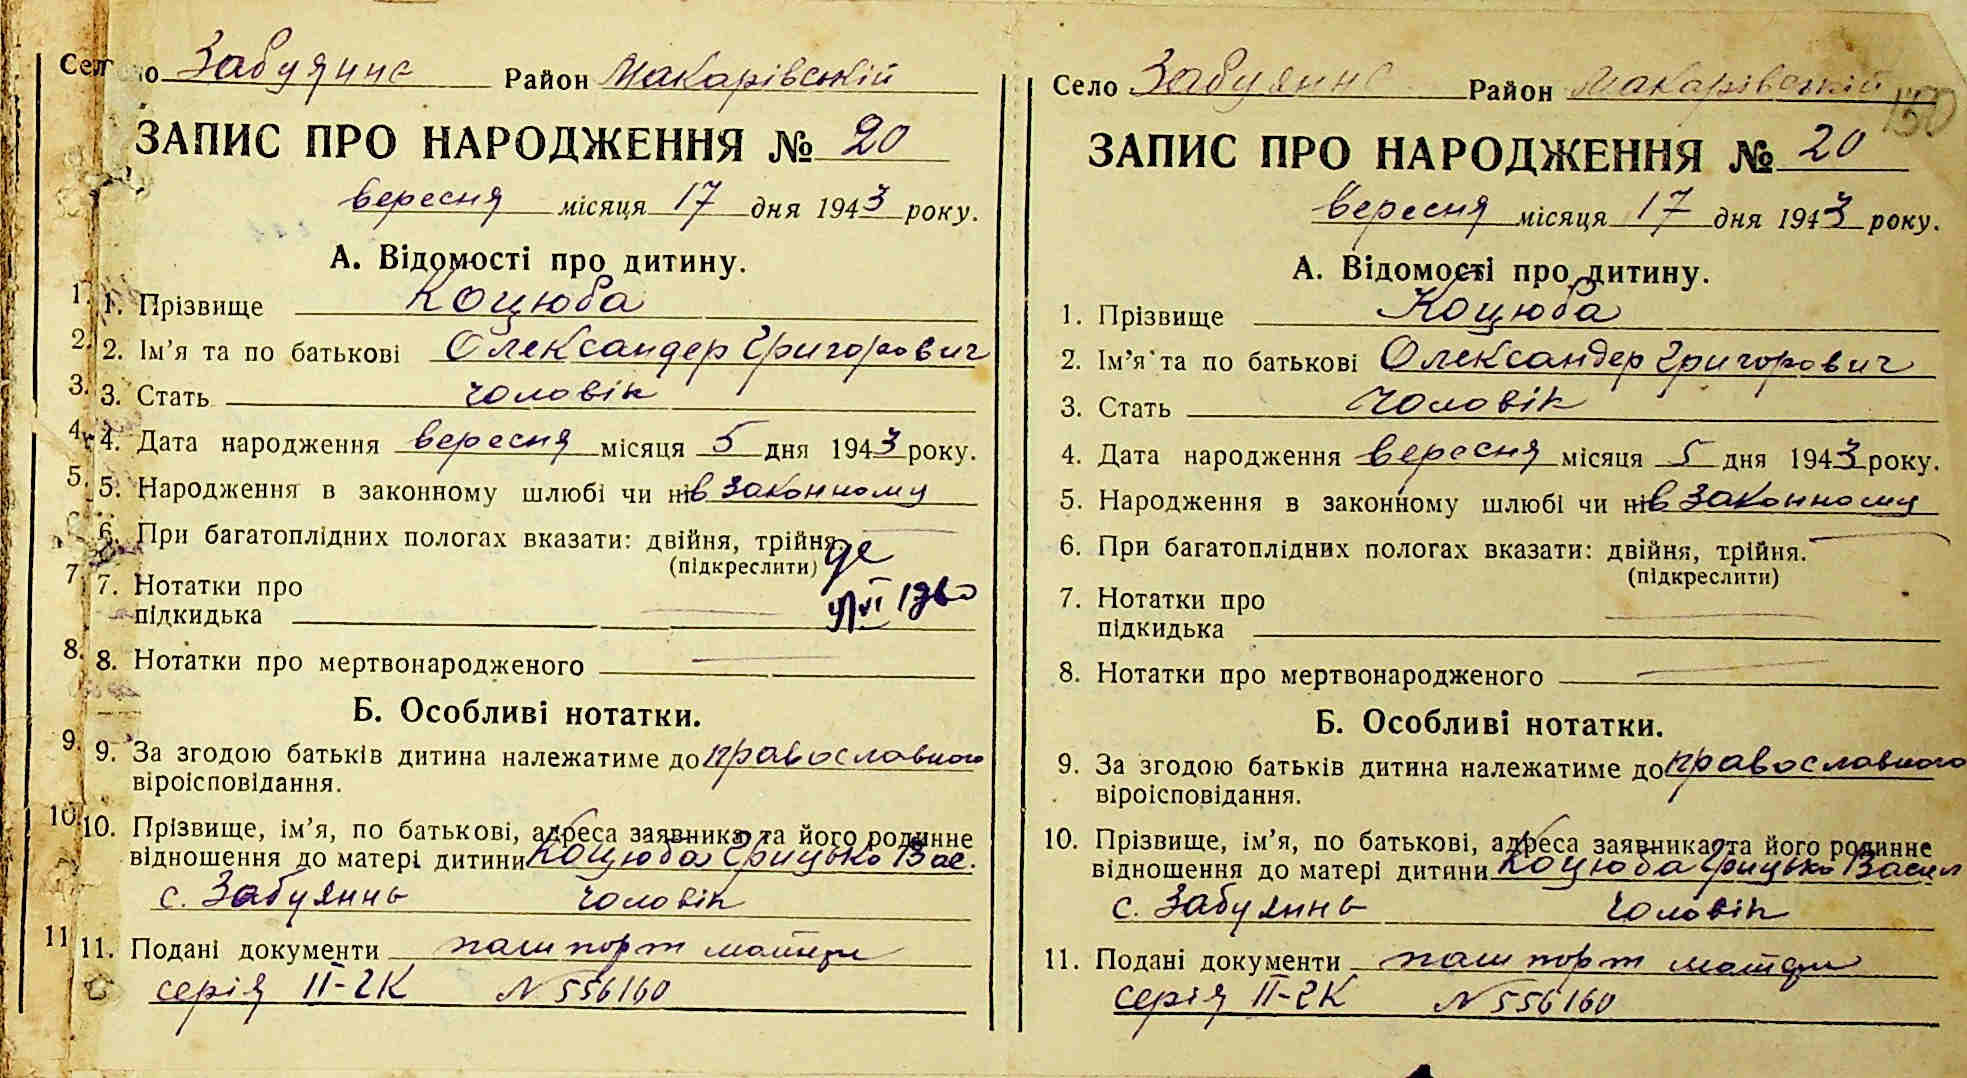 Село Забуянне Район Макарівській
ЗАПИС ПРО НАРОДЖЕННЯ № 20
вересня місяця 17 дня 1943 року.
А. Відомості про дитину.
1. 1. Прізвище Коцюба
2. 2. Ім'я та по батькові Олександер Григорович
3. 3. Стать чоловік
4. 4. Дата народження вересня місяця 5 дня 1943 року.
5. 5. Народження в законному шлюбі чи ні в законному
6. При багатоплідних пологах вказати: двійня, трійня.
(підкреслити)
7. 7. Нотатки про
підкидька
8. 8. Нотатки про мертвонародженого
Б. Особливі нотатки.
9. 9. За згодою батьків дитина належатиме до православного
віроісповідання.
10. 10. Прізвище, ім'я, по батькові, адреса заявника та його родинне
відношення до матері дитини Коцюба Грицько Вас.
с. Забуяннь чоловік
11 11. Подані документи пашпорт матери
серія II-2К N 556160
Село Забуянне Район Макарівській
150
ЗАПИС ПРО НАРОДЖЕННЯ № 20
вересня місяця 17 дня 1943 року.
А. Відомості про дитину.
1. Прізвище Коцюба
2. Ім'я та по батькові Олександер Григорович
3. Стать чоловік
4. Дата народження вересня місяця 5 дня 1943 року.
5. Народження в законному шлюбі чи ні в законному
6. При багатоплідних пологах вказати: двійня, трійня.
(підкреслити)
7. Нотатки про
підкидька
8. Нотатки про мертвонародженого
Б. Особливі нотатки.
9. За згодою батьків дитина належатиме до православного
віроісповідання.
10. Прізвище, ім'я, по батькові, адреса заявника та його родинне
відношення до матері дитини Коцюба Грицько Васил
с. Забуяннь чоловік
11. Подані документи пашпорт матери
серія II-2К N 556160